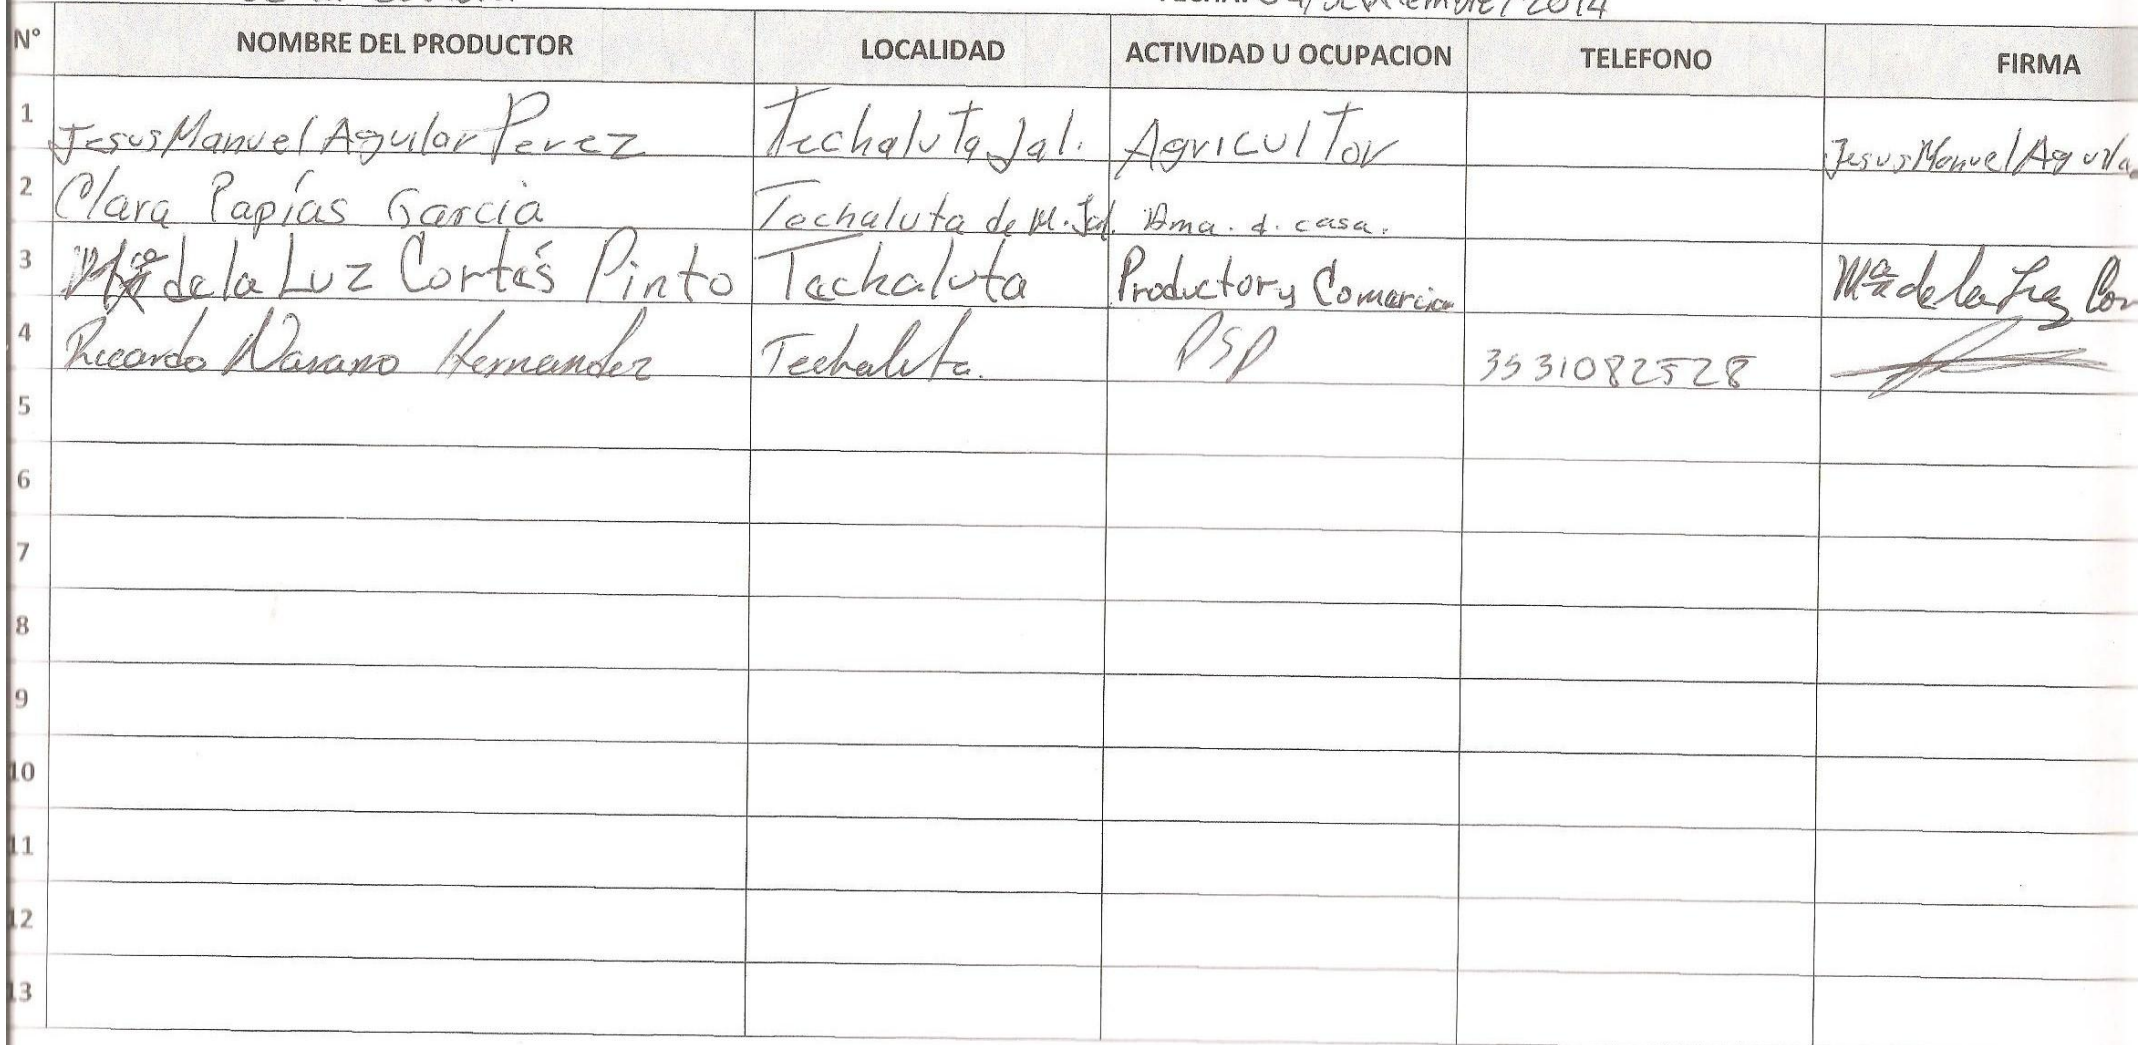 2014
N° NOMBRE DEL PRODUCTOR LOCALIDAD ACTIVIDAD U OCUPACION TELEFONO FIRMA
1 Jesus Manuel Aguilar Perez Techaluta Jal. Agricultor Jesus Manuel Aguila
2 Clara Papías Garcia Techaluta de M. Jal. Ama. d. casa.
3 Ma de la Luz Cortés Pinto Techaluta Productor y Comercia Ma de la Luz Cor
4 Ricardo Hernandez Techaluta. PSP 3531082528
5
6
7
8
9
10
11
12
13